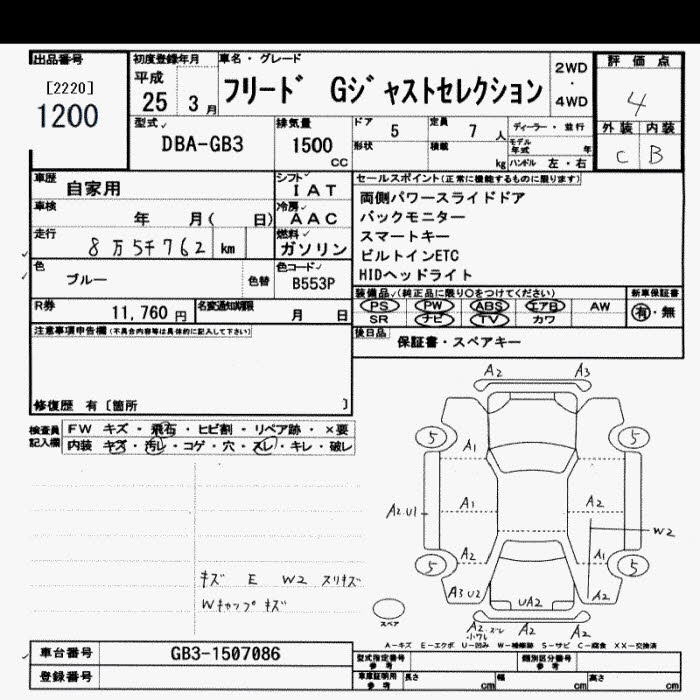 出品番号 初度登録年月 車名・グレード
[2220] 平成 2WD 評価点
1200 25 3月 フリード Gジャストセレクション ・ 4
4WD
型式 排気量 ドア 5 定員 7 人 ディーラー・並行 外装 内装
DBA-GB3 1500 cc 形状 積載 kg モデル年式 年 C B
ハンドル 左・右
車歴 自家用 シフト IAT セールスポイント(正常に機能するものに限ります)
車検 年 月( 日) 冷房 AAC 両側パワースライドドア
走行 8万5千762 km 燃料 ガソリン バックモニター
スマートキー
色 ブルー 色替 色コード B553P ビルトインETC
HIDヘッドライト
R券 11,760円 名変通知期限 月 日 装備品(純正品に限り○をつけてください) 新車保証書
PS PW ABS エアB AW 有・無
SR ナビ TV カワ
注意事項申告欄(不具合内容等は具体的に記入して下さい) 後日品 保証書・スペアキー
修復歴 有〔箇所 〕
検査員記入欄 FW キズ・飛石・ヒビ割・リペア跡・×要
内装 キズ・汚レ・コゲ・穴・スレ・キレ・破レ
A2 A3
5 5
A1
A2.U1 A1 A2 W2
A2 A1
5 5
A3 U2 UA2 A2
キズ E W2 スリキズ
Wキャップキズ
スペア
A2 スレ A2 A2
A-キズ E-エクボ U-凹み W-補修跡 S-サビ C-腐食 XX-交換済
車台番号 GB3-1507086 型式指定番号 参考 類別区分番号 参考
登録番号 車庫証明用 参考 長さ cm 幅 cm 高さ cm